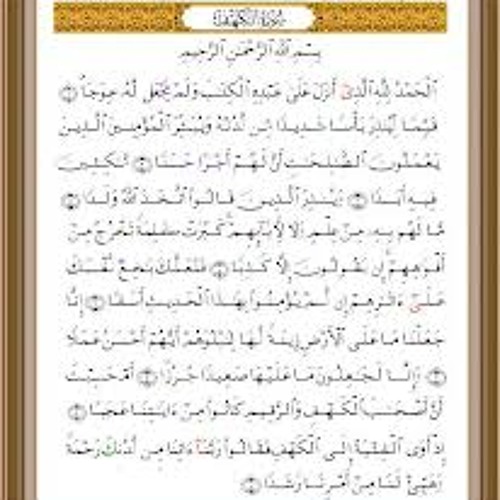 سُورَةُ الكَهْفِ
بِسْمِ اللَّهِ الرَّحْمَٰنِ الرَّحِيمِ
الْحَمْدُ لِلَّهِ الَّذِي أَنزَلَ عَلَىٰ عَبْدِهِ الْكِتَابَ وَلَمْ يَجْعَل لَّهُ عِوَجًا ۝
قَيِّمًا لِّيُنذِرَ بَأْسًا شَدِيدًا مِّن لَّدُنْهُ وَيُبَشِّرَ الْمُؤْمِنِينَ الَّذِينَ
يَعْمَلُونَ الصَّالِحَاتِ أَنَّ لَهُمْ أَجْرًا حَسَنًا ۝ مَّاكِثِينَ
فِيهِ أَبَدًا ۝ وَيُنذِرَ الَّذِينَ قَالُوا اتَّخَذَ اللَّهُ وَلَدًا ۝
مَّا لَهُم بِهِ مِنْ عِلْمٍ وَلَا لِآبَائِهِمْ كَبُرَتْ كَلِمَةً تَخْرُجُ مِنْ
أَفْوَاهِهِمْ إِن يَقُولُونَ إِلَّا كَذِبًا ۝ فَلَعَلَّكَ بَاخِعٌ نَّفْسَكَ
عَلَىٰ آثَارِهِمْ إِن لَّمْ يُؤْمِنُوا بِهَٰذَا الْحَدِيثِ أَسَفًا ۝ إِنَّا
جَعَلْنَا مَا عَلَى الْأَرْضِ زِينَةً لَّهَا لِنَبْلُوَهُمْ أَيُّهُمْ أَحْسَنُ عَمَلًا
۝ وَإِنَّا لَجَاعِلُونَ مَا عَلَيْهَا صَعِيدًا جُرُزًا ۝ أَمْ حَسِبْتَ
أَنَّ أَصْحَابَ الْكَهْفِ وَالرَّقِيمِ كَانُوا مِنْ آيَاتِنَا عَجَبًا ۝
إِذْ أَوَى الْفِتْيَةُ إِلَى الْكَهْفِ فَقَالُوا رَبَّنَا آتِنَا مِن لَّدُنكَ رَحْمَةً
وَهَيِّئْ لَنَا مِنْ أَمْرِنَا رَشَدًا ۝